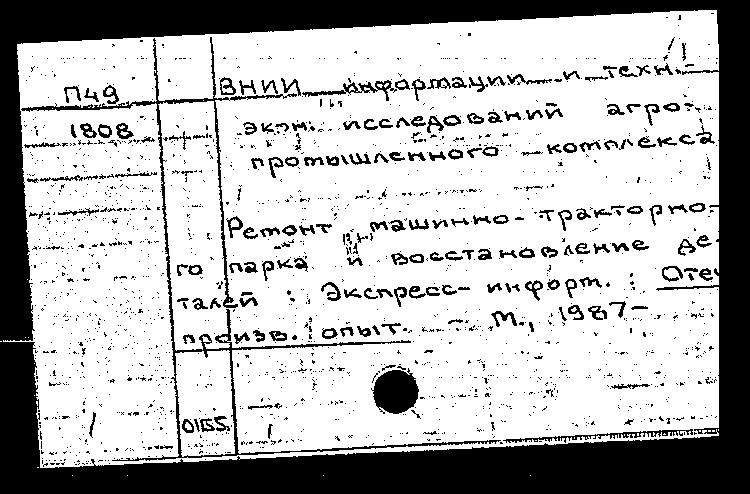 П49 ВНИИ информации и техн.-
1808 экон. исследований агро-
промышленного комплекса
Ремонт машинно-тракторно-
го парка и восстановление де-
талей : Экспресс-информ. : Отеч
произв. опыт. - М., 1987-